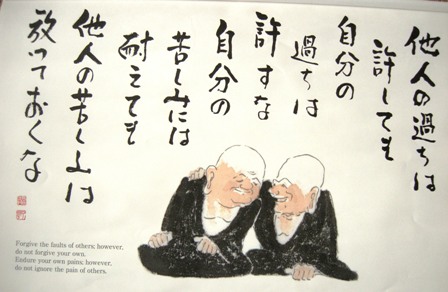 他人の過ちは
許しても
自分の
過ちは
許すな
自分の
苦しみには
耐えても
他人の苦しみは
放っておくな
Forgive the faults of others; however,
do not forgive your own.
Endure your own pains; however,
do not ignore the pain of others.